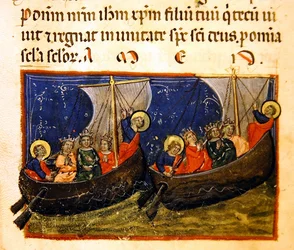 Ponim nrm ihm xpm filiu tuu q tecu ui
uit & regnat in unitate sps sci deus, p omia
scla sclor. A M E N